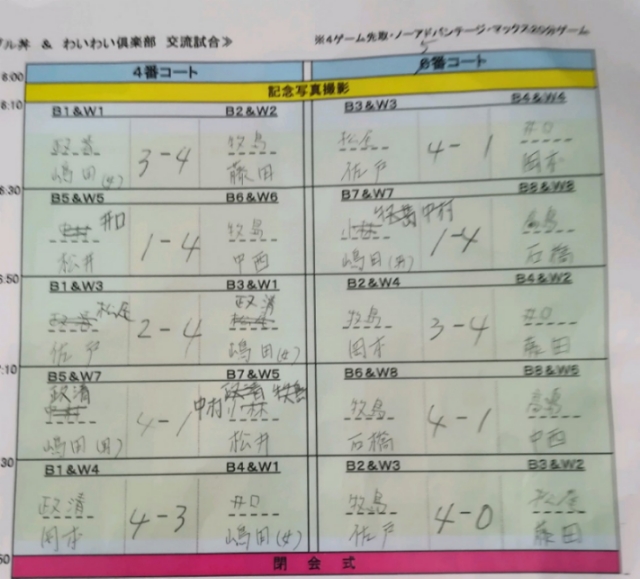 ブル丼 & わいわい倶楽部 交流試合≫
※4ゲーム先取・ノーアドバンテージ・マックス
4番コート
番コート
記念写真撮影
B1&W1 B2&W2 B3&W3 B4&W4
政清 牧島 松尾 井口
3-4 4-1
嶋田(女) 藤田 佐戸 岡本
B5&W5 B6&W6 B7&W7 B8&W8
井口 牧島 中村 高島
1-4 1-4
松井 中西 嶋田(男) 石橋
B1&W3 B3&W1 B2&W4 B4&W2
松尾 政清 牧島 井口
2-4 3-4
佐戸 嶋田(女) 岡本 藤田
B5&W7 B7&W5 B6&W8 B8&W6
政清 中村 牧島 高島
4-1 4-1
嶋田(男) 松井 石橋 中西
B1&W4 B4&W1 B2&W3 B3&W2
政清 井口 牧島 松尾
4-3 4-0
岡本 嶋田(女) 佐戸 藤田
閉会式